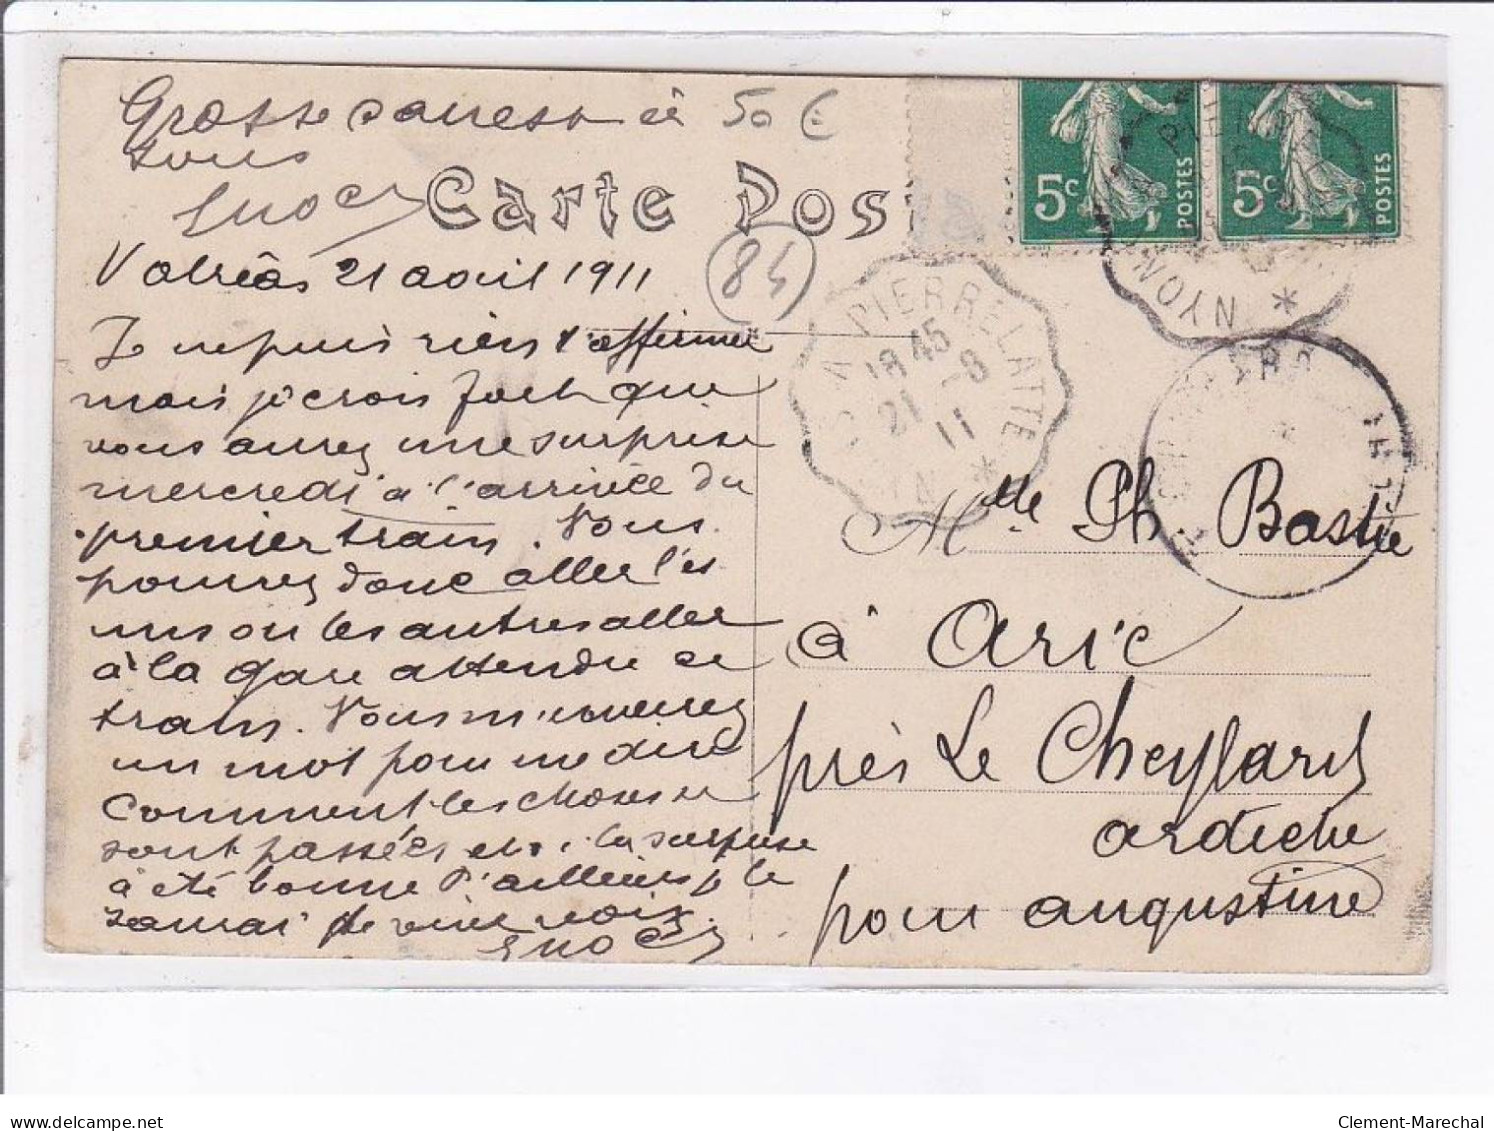 Grosse caresse à
tous
50 €
Enoch
Carte Pos
5c POSTES
5c POSTES
Valréas 21 aout 1911
84
Je ne puis rien t'affirmer
mais je crois fort que
vous aurez une surprise
mercredi à l'arrivée du
premier train. Vous
pourrez donc aller les
uns ou les autres aller
à la gare attendre ce
train. Vous m'enverrez
un mot pour me dire
comment les choses se
sont passées et si la surprise
à été bonne d'ailleurs je le
saurai de vive voix.
Enoch
NYON À PIERRELATTE
18 45
21 -8
11
PIER
NYON
Mlle Ph Bastie
à Aric
près Le Cheylard
ardèche
pour augustine
delcampe.net
Clement-Marechal